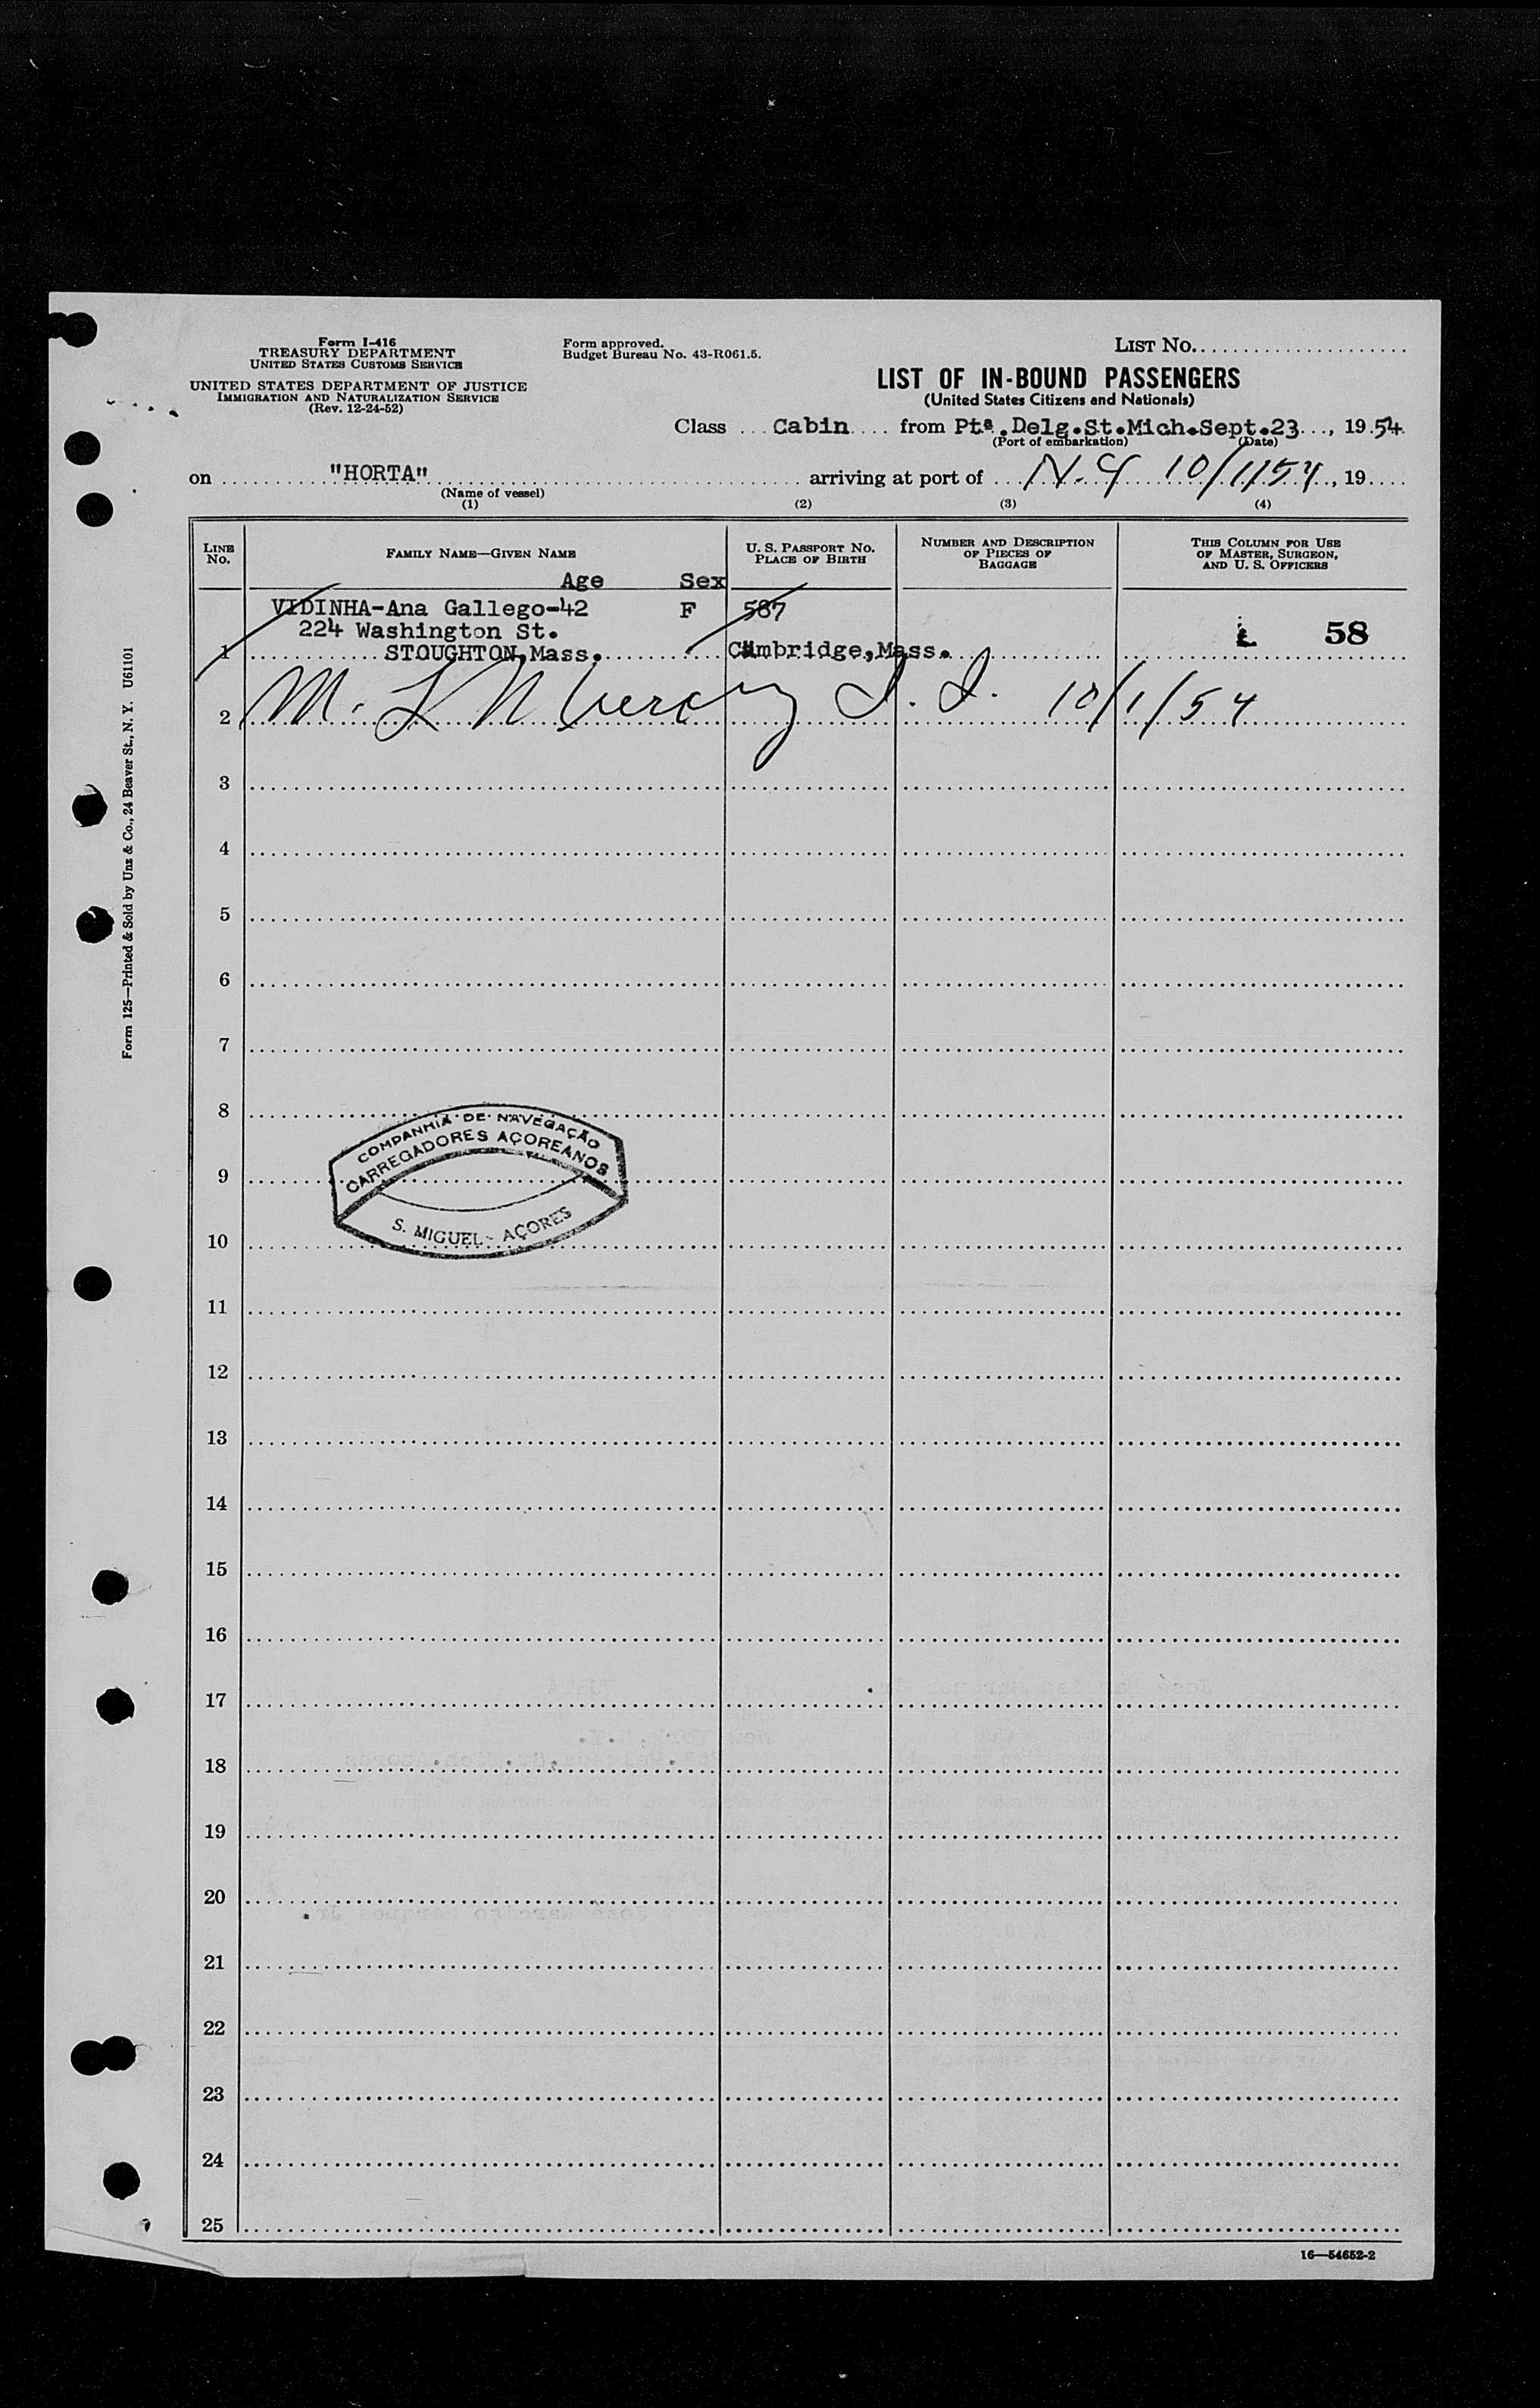 Form I-416
TREASURY DEPARTMENT
UNITED STATES CUSTOMS SERVICE
UNITED STATES DEPARTMENT OF JUSTICE
IMMIGRATION AND NATURALIZATION SERVICE
(Rev. 12-24-52)
Form approved.
Budget Bureau No. 43-R061.5.
LIST NO.
LIST OF IN-BOUND PASSENGERS
(United States Citizens and Nationals)
Class Cabin from Ptª.Delg.St.Mich.Sept.23, 1954
(Port of embarkation) (Date)
on "HORTA" arriving at port of N.Y 10/1/54, 19
(Name of vessel)
(1) (2) (3) (4)
LINE NO.
FAMILY NAME—GIVEN NAME
Age Sex
U. S. PASSPORT NO.
PLACE OF BIRTH
NUMBER AND DESCRIPTION
OF PIECES OF
BAGGAGE
THIS COLUMN FOR USE
OF MASTER, SURGEON,
AND U. S. OFFICERS
VIDINHA-Ana Gallego-42 F 587
224 Washington St. 58
1 STOUGHTON,Mass. Cambridge,Mass.
2 M. L. I. I. 10/1/54
3
4
5
6
7
8
COMPANHIA DE NAVEGAÇÃO
CARREGADORES AÇOREANOS
9
S. MIGUEL - AÇORES
10
11
12
13
14
15
16
17
18
19
20
21
22
23
24
25
16—54652-2
Form 125—Printed & Sold by Unz & Co., 24 Beaver St., N. Y. U61101